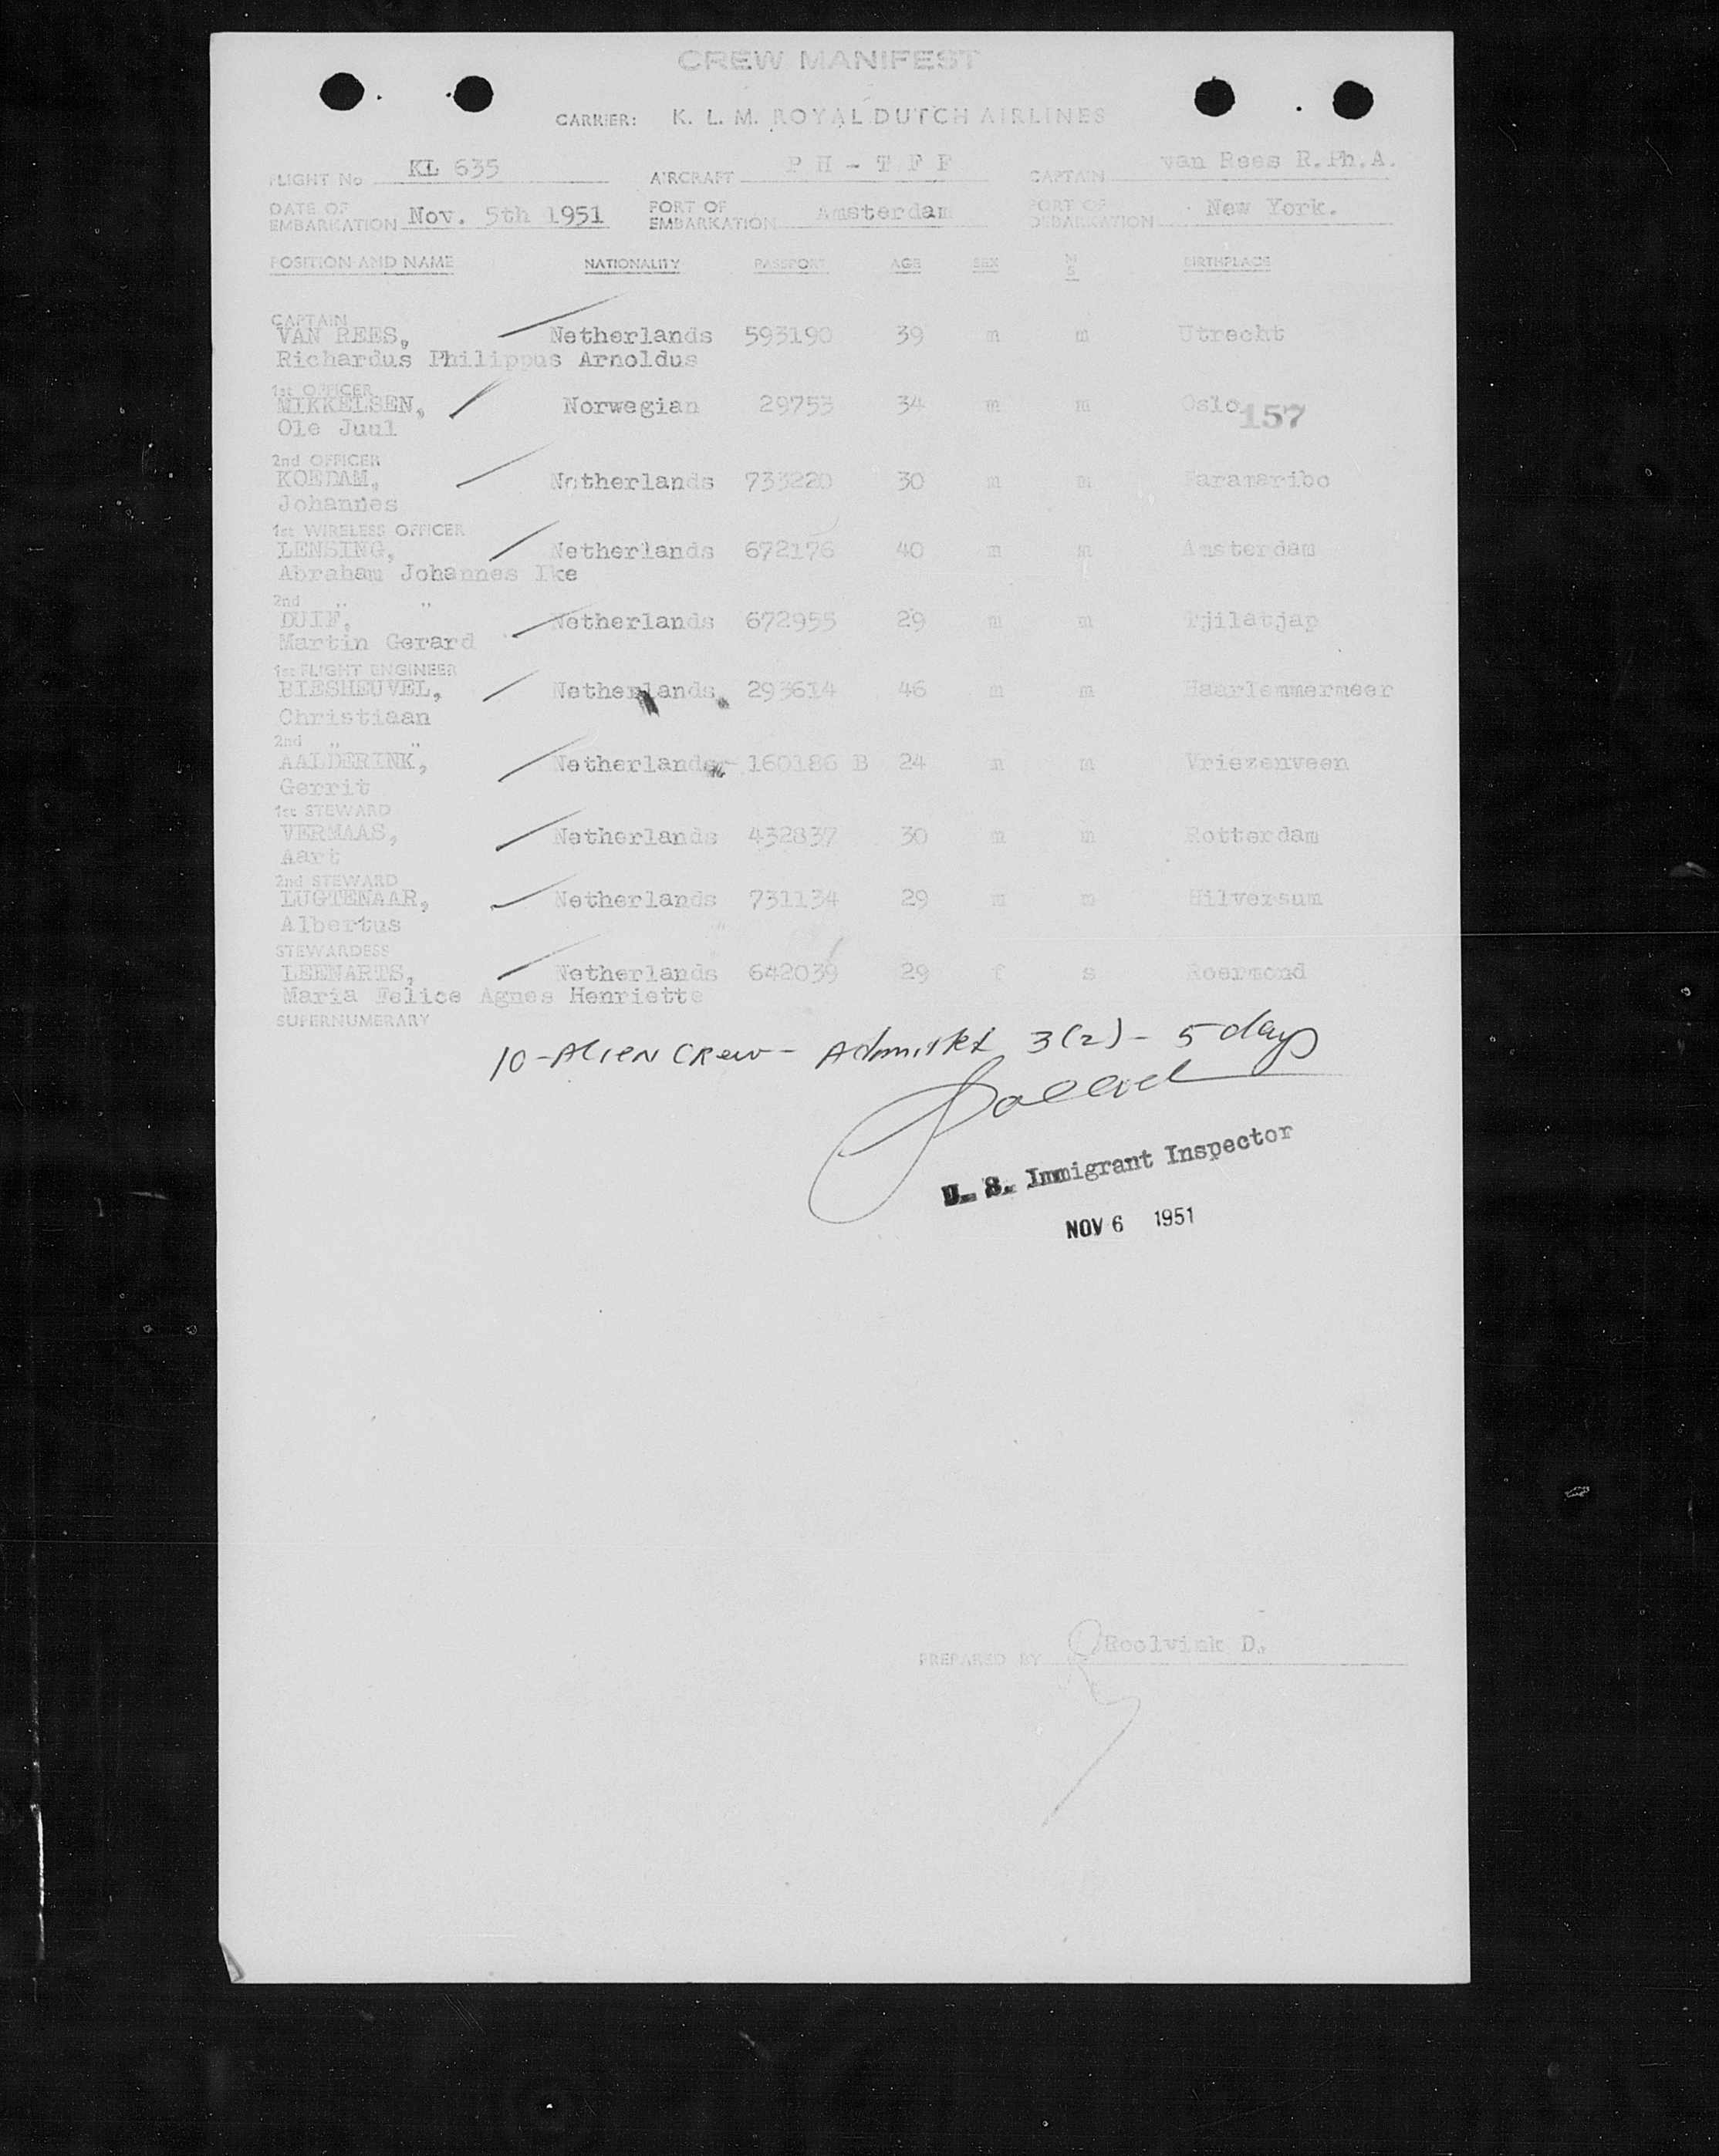 CREW MANIFEST
CARRIER: K. L. M. ROYAL DUTCH AIRLINES
FLIGHT No KL 635 AIRCRAFT PH-TFF CAPTAIN van Rees R.Ph.A.
DATE OF EMBARKATION Nov. 5th 1951 PORT OF EMBARKATION Amsterdam PORT OF DEBARKATION New York.
POSITION AND NAME NATIONALITY PASSPORT AGE SEX M S BIRTHPLACE
CAPTAIN
VAN REES, Netherlands 593190 39 m m Utrecht
Richardus Philippus Arnoldus
1st OFFICER
MIKKELSEN, Norwegian 29753 34 m m Oslo 157
Ole Juul
2nd OFFICER
KOEDAM, Netherlands 733220 30 m m Paramaribo
Johannes
1st WIRELESS OFFICER
LENSING, Netherlands 672176 40 m m Amsterdam
Abraham Johannes Ike
2nd " "
DUIF, Netherlands 672955 29 m m Tjilatjap
Martin Gerard
1st FLIGHT ENGINEER
BIESHEUVEL, Netherlands 293614 46 m m Haarlemmermeer
Christiaan
2nd " "
AALDERINK, Netherlands 160186 B 24 m m Vriezenveen
Gerrit
1st STEWARD
VERMAAS, Netherlands 432837 30 m m Rotterdam
Aart
2nd STEWARD
LUGTENAAR, Netherlands 731134 29 m m Hilversum
Albertus
STEWARDESS
LEENARTS, Netherlands 642039 29 f s Roermond
Maria Felice Agnes Henriette
SUPERNUMERARY
10-Alien Crew- Admitted 3(2)- 5 days
U. S. Immigrant Inspector
NOV 6 1951
PREPARED BY Roolvink D.